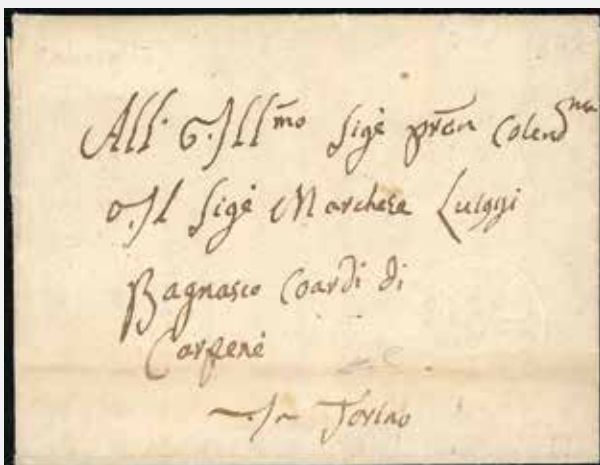 All. G. Ill.mo Sigè pròn Colendmo
Il Sigè Marchese Luiggi
Bagnasco Coardi di
Carpenè
In Torino